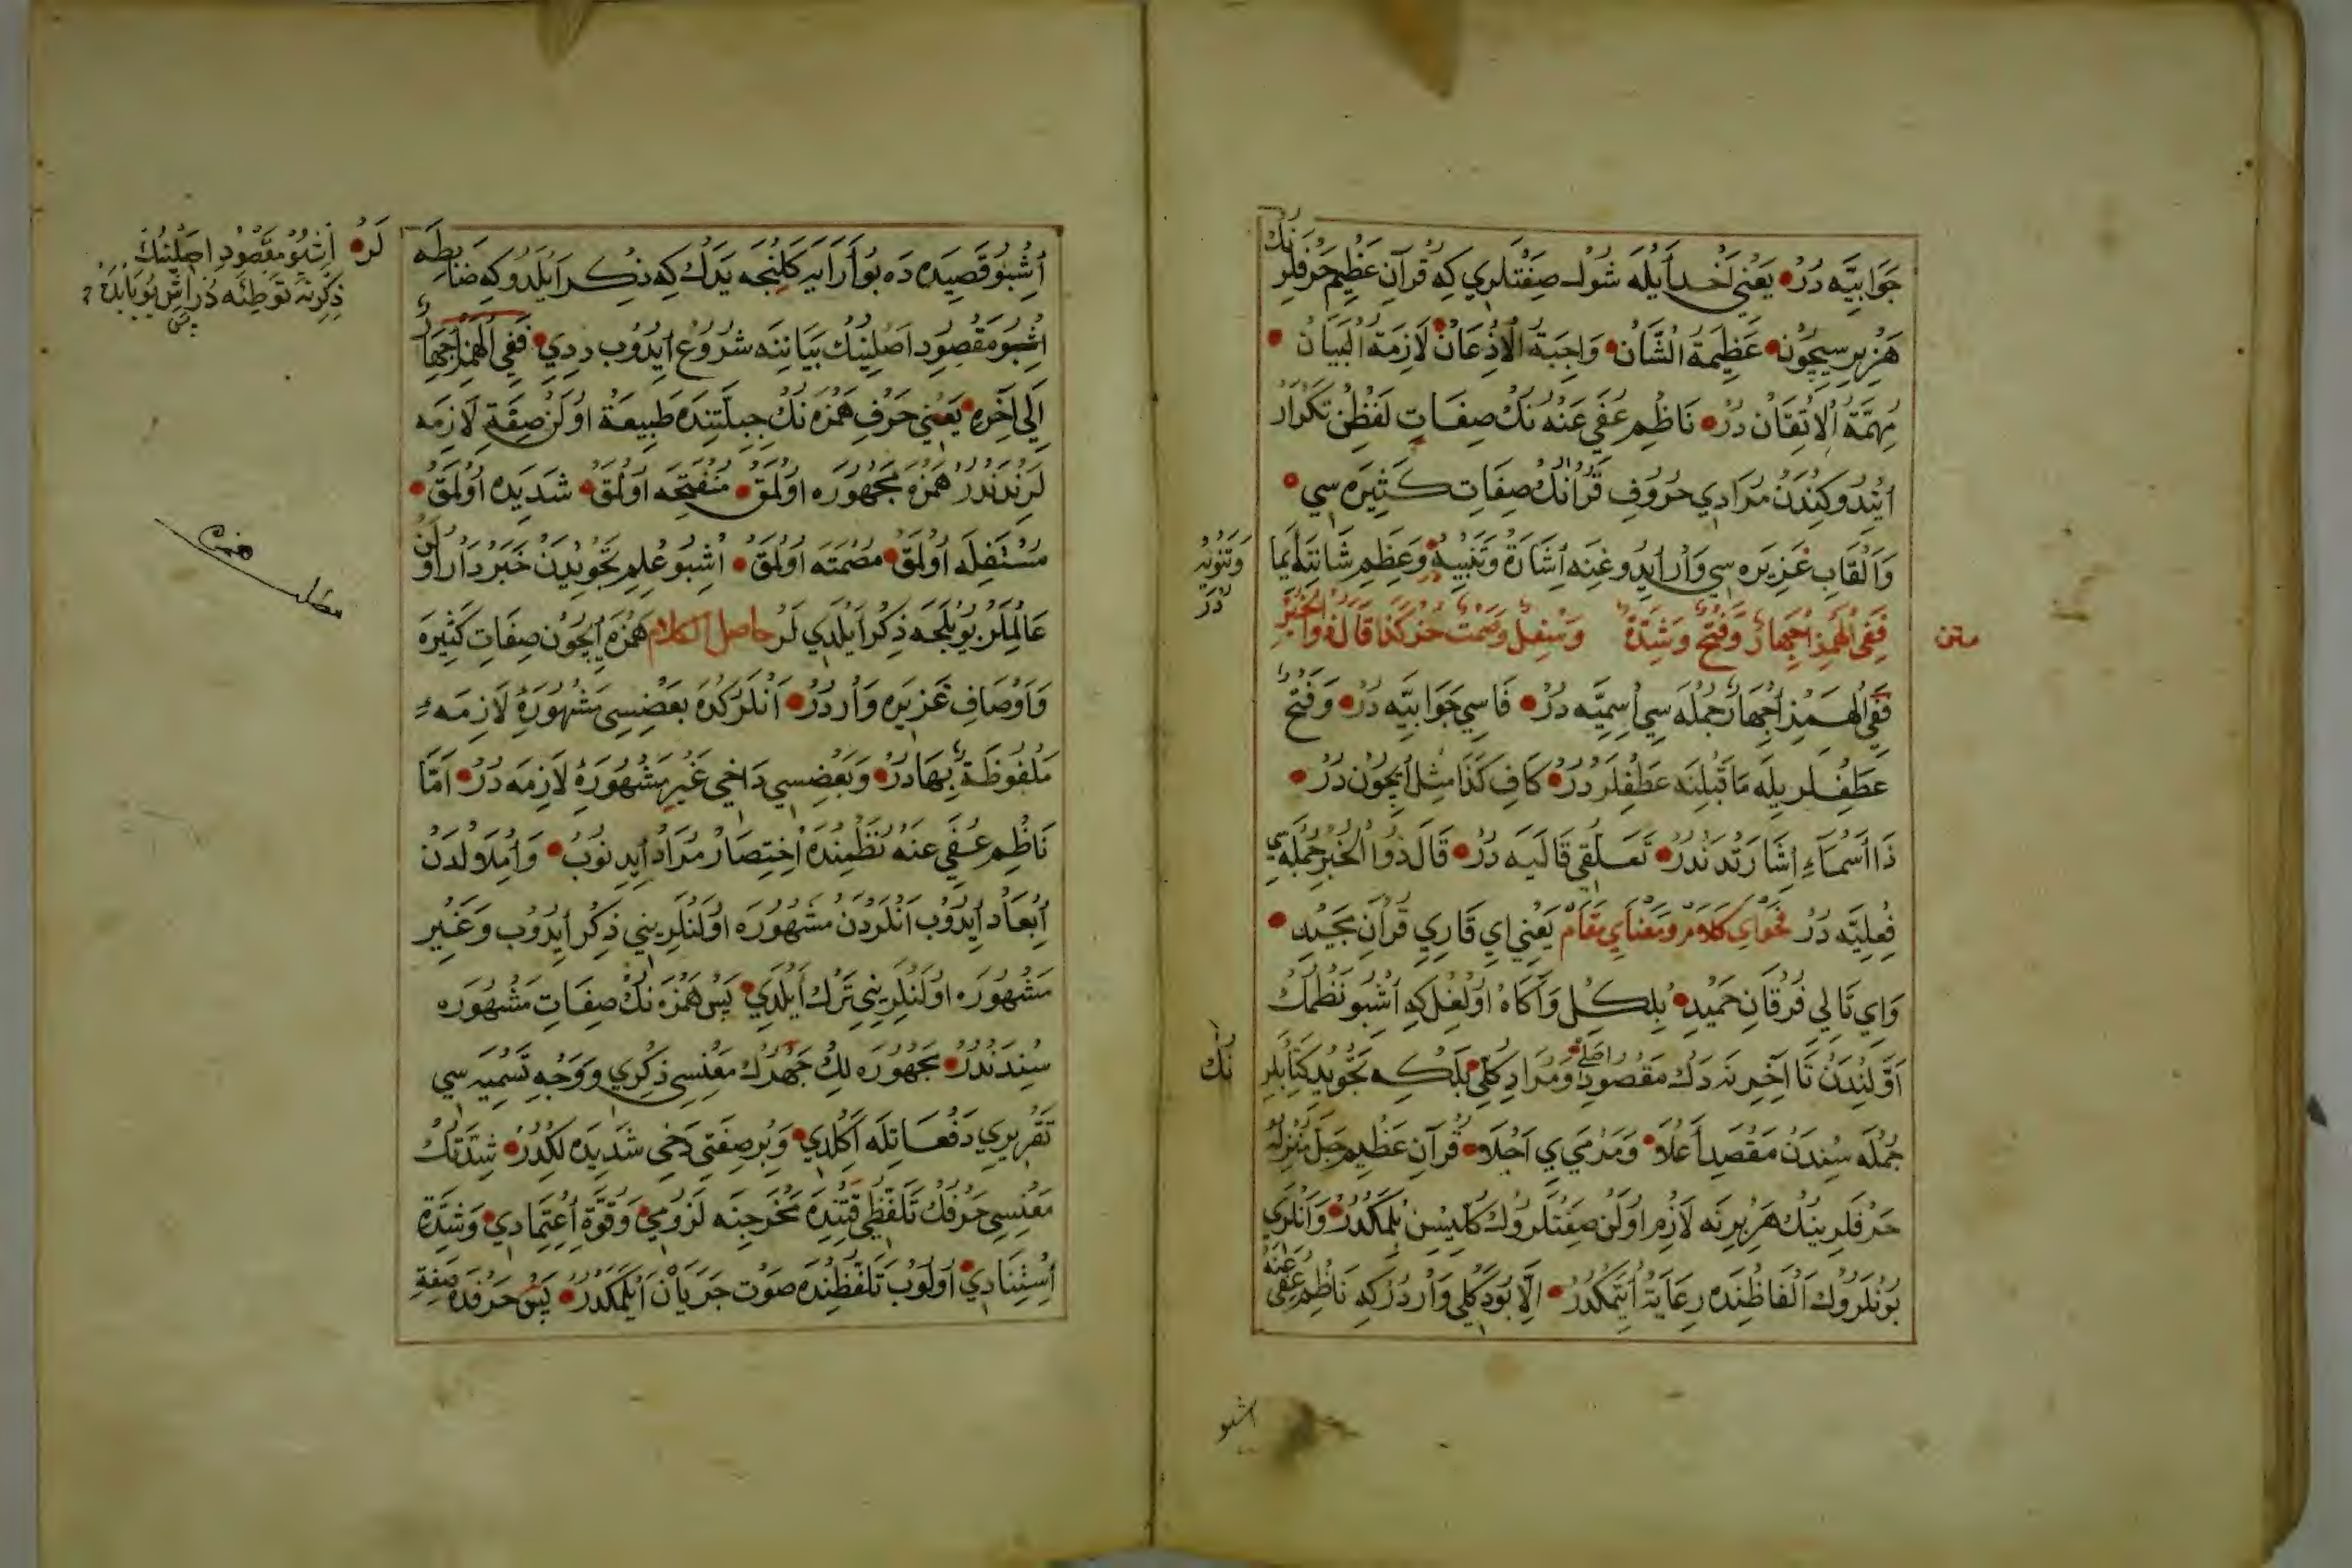 جَوَابِيَّه دُرْ يَعْنِي أَخْدْ أَيْلَه شُولْ صِفَتْلَرِي كِه قُرْآنِ عَظِيمْ حَرْفْلَرِنُكْ
هَرْ بِرِسِيچُونْ عَظِيمَةُ الشَّانْ وَاجِبَةُ الْاِذْعَانْ لَازِمَةُ الْبَيَانْ
مُهِمَّةُ الْاِتْقَانْ دُرْ نَاظِمِ عُفِيَ عَنْهُ نُكْ صِفَاتِ لَفْظِنْ تَكْرَارْ
اَيْتِدُوكِنْدَنْ مُرَادِي حُرُوفِ قُرْآنُكْ صِفَاتِ كَثِيرَه سِي
وَاَلْقَابِ غَزِيرَه سِي وَارْ اَيْدُوغِنَه اِشَارَةْ وَتَنْبِيهْ وَعَظِيمِ شَانِنَه اِيمَا
وَتَنْوِيهْ دُرْ
متن
فَفِي الْهَمْزِ اِجْهَارٌ وَفَتْحٌ وَشِدَّةٌ وَسُفْلٌ وَصَمْتٌ خُذْ كَذَا قَالَ ذُو الْخَبَرْ
فَفِي الْهَمْزِ اِجْهَارٌ جُمْلَه سِي اِسْمِيَّه دُرْ فَاسِي جَوَابِيَّه دُرْ وَفَتْحٌ
عَطْفْلَرِيلَه مَا قَبْلِنَه عَطْفْلَرْ دُرْ كَافِ كَذَا مِثْلْ اِيچُونْ دُرْ
ذَا اَسْمَاءِ اِشَارَتْدَنْدُرْ تَعَلُّقِي قَالَيَه دُرْ قَالَ ذُو الْخَبَرْ جُمْلَه سِي
فِعْلِيَّه دُرْ فَحْوَايِ كَلَامْ وَمَعْنَايِ مَقَامْ يَعْنِي اَيْ قَارِي قُرْآنِ مَجِيدْ
وَاَيْ تَالِي فُرْقَانِ حَمِيدْ بِلْكِلْ وَآكَاهْ اُولْغِلْ كِه اُشْبُو نَظْمُكْ
اَوَّلِنْدَنْ تَا آخِرِنَه دَكْ مَقْصُودِ اَصْلِي وَمُرَادِ كُلِّي بَلْكِه تَجْوِيدْ كِتَابْلَرِ
نُكْ
جُمْلَه سِنْدَنْ مَقْصَدِ اَعْلَا وَمَرْمَيِ اَجْلَا قُرْآنِ عَظِيمْ جَلَّ مُنْزِلُهُ
حَرْفْلَرِينُكْ هَرْ بِرِنَه لَازِمْ اُولَنْ صِفَتْلَرُوكْ كُلِّيسِنْ بِلْمَكْدُرْ وَاَنْلَرِي
بُونْلَرُوكْ اَلْفَاظِنْدَه رِعَايَةْ اَيْتْمَكْدُرْ اِلَّا بُو دَكْلِي وَارْدُرْ كِه نَاظِمِ عُفِيَ عَنْهُ
اشبو
اُشْبُو قَصِيدَه دَه بُو آرَايَه كَلِنْجَه يَدَكْ كِه ذِكْرْ اَيْلَدُوكِه ضَابِطَه
لَرْ اُشْبُو مَقْصُودِ اَصْلِينُكْ
ذِكْرِنَه تَوْطِئَه دُرْ
اُشْبُو مَقْصُودِ اَصْلِينُكْ بَيَانِنَه شُرُوعْ اَيْدُوبْ دِدِي فَفِي الْهَمْزِ اِجْهَارٌ
اِلَى آخِرِه يَعْنِي حَرْفِ هَمْزَه نُكْ جِبِلَّتِنْدَه طَبِيعَةْ اُولَنْ صِفَةِ لَازِمَه
لَرِنْدَنْدُرْ هَمْزَه مَجْهُورَه اُولْمَقْ مُنْفَتِحَه اُولْمَقْ شَدِيدَه اُولْمَقْ
مُسْتَفِلَه اُولْمَقْ مُصْمَتَه اُولْمَقْ اُشْبُو عِلْمِ تَجْوِيدَنْ خَبَرْدَارْ اُولَنْ
عَالِمْلَرْ بُويْلَجَه ذِكْرْ اَيْلَدِي لَرْ حاصل الكلام هَمْزَه اِيچُونْ صِفَاتِ كَثِيرَه
وَاَوْصَافِ غَزِيرَه وَارْدُرْ اَنْلَرْكُدَه بَعْضِيسِي مَشْهُورَۀِ لَازِمَۀِ
مَلْفُوظَةٌ بِهَادُرْ وَبَعْضِيسِي دَاخِي غَيْرِ مَشْهُورَۀِ لَازِمَه دُرْ اَمَّا
نَاظِمِ عُفِيَ عَنْهُ نَظْمِنْدَه اِخْتِصَارْ مُرَادْ اَيْدِنُوبْ وَاِمْلَالْدَنْ
اِبْعَادْ اَيْدُوبْ اَنْلَرْدَنْ مَشْهُورَه اُولَنْلَرِينِي ذِكْرْ اَيْدُوبْ وَغَيْرِ
مَشْهُورَه اُولَنْلَرِينِي تَرْكْ اَيْلَدِي پَسْ هَمْزَه نُكْ صِفَاتِ مَشْهُورَه
سِنْدَنْدُرْ مَجْهُورَه لِكْ جَهْرُكْ مَعْنِسِي ذِكْرِي وَوَجْهِ تَسْمِيَه سِي
تَقْرِيرِي دَفَعَاتِلَه اَكْلَدِي وَبِرْ صِفَتِي دَخِي شَدِيدَه لِكْدُرْ شِدَّتُكْ
مَعْنِسِي حَرْفُكْ تَلَفُّظِي وَقْتِنْدَه مَخْرَجِنَه لُزُومِي وَقُوَّةِ اِعْتِمَادِي وَشِدَّةِ
اِسْتِنَادِي اُولُوبْ تَلَفُّظِنْدَه صَوْتْ جَرَيَانْ اَيْلَمَمَكْدُرْ پَسْ حَرْفْدَه صِفَةِ